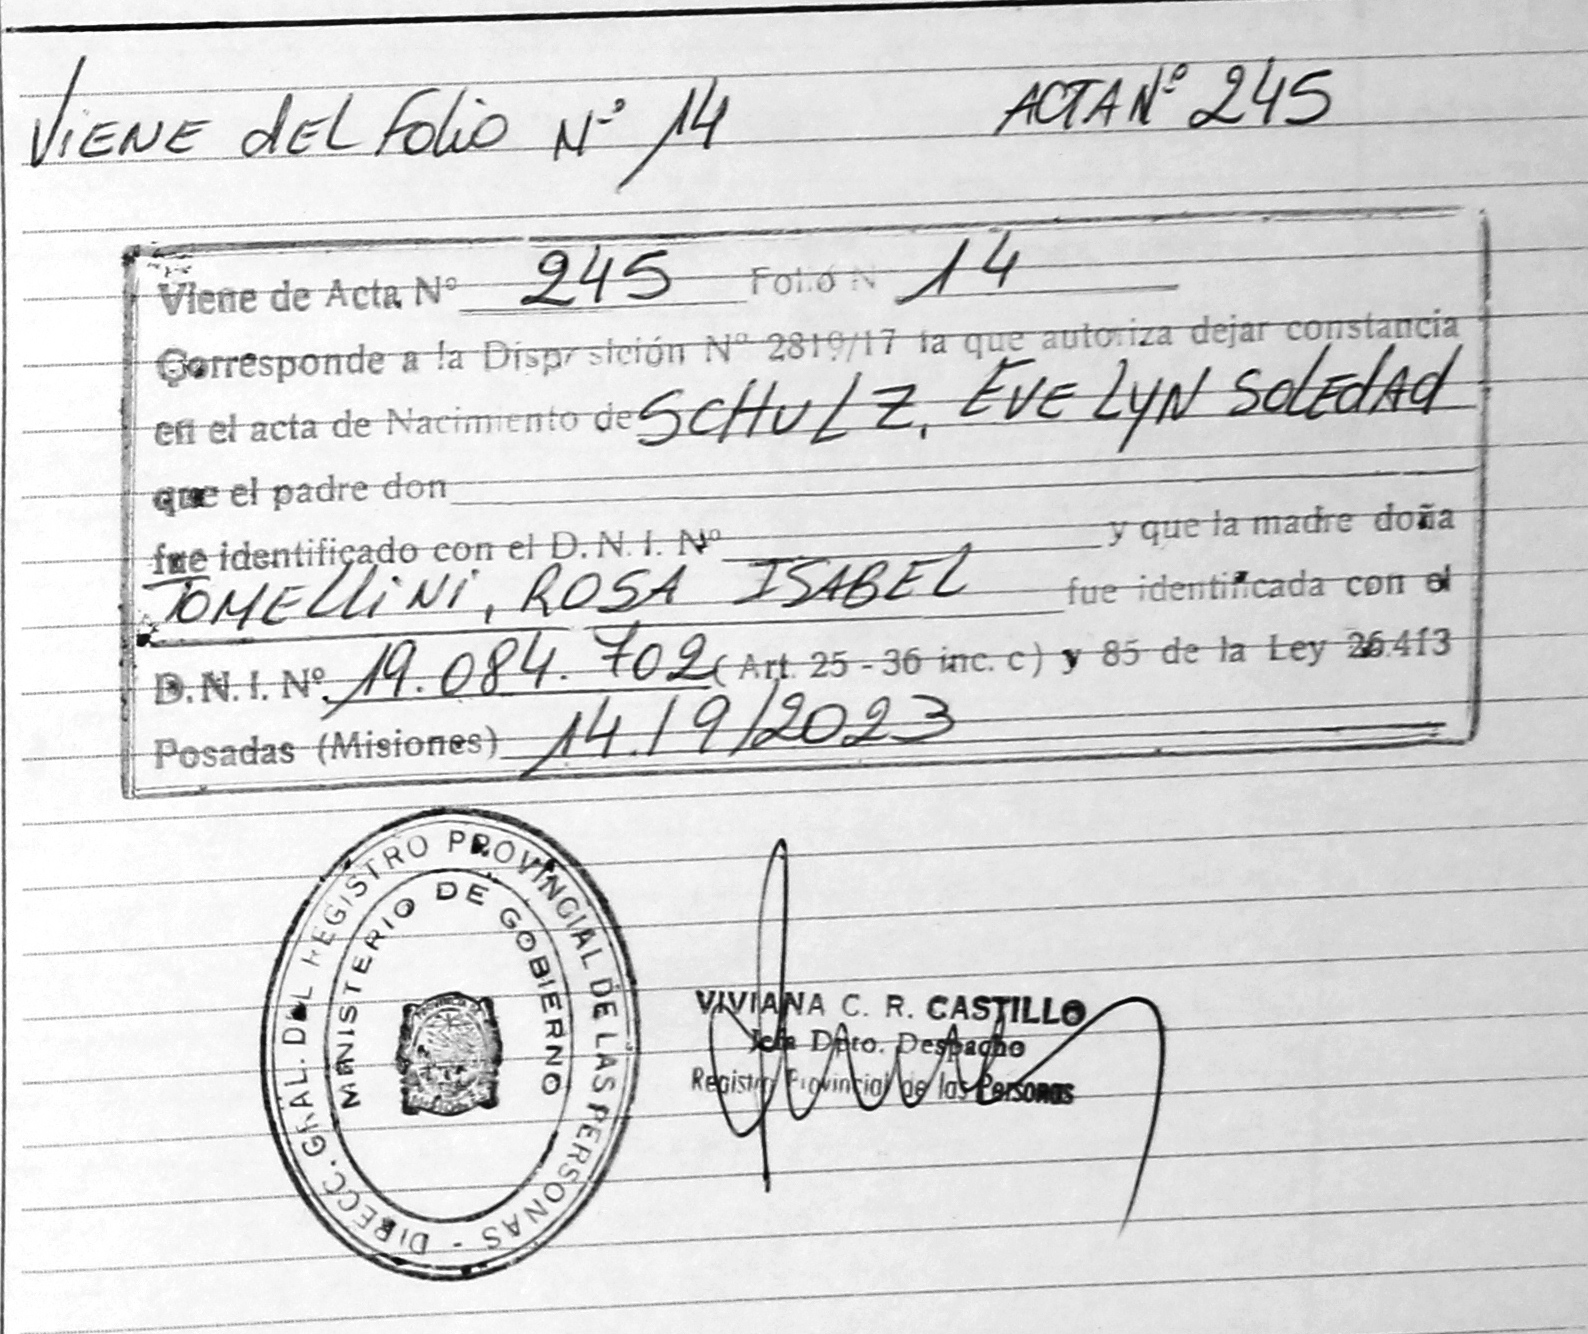 VIENE DEL FOLIO Nº 14 ACTA Nº 245
Viene de Acta Nº 245 Folio N 14
Corresponde a la Disposición Nº 2819/17 la que autoriza dejar constancia
en el acta de Nacimiento de SCHULZ, EVELYN SOLEDAD
que el padre don
fue identificado con el D. N. I. Nº y que la madre doña
TOMELLINI, ROSA ISABEL fue identificada con el
D. N. I. Nº 19.084.702 (Art. 25 - 36 inc. c) y 85 de la Ley 26.413
Posadas (Misiones) 14/9/2023
DIRECC. GRAL. DEL REGISTRO PROVINCIAL DE LAS PERSONAS -
MINISTERIO DE GOBIERNO
VIVIANA C. R. CASTILLO
Jefa Dpto. Despacho
Registro Provincial de las Personas